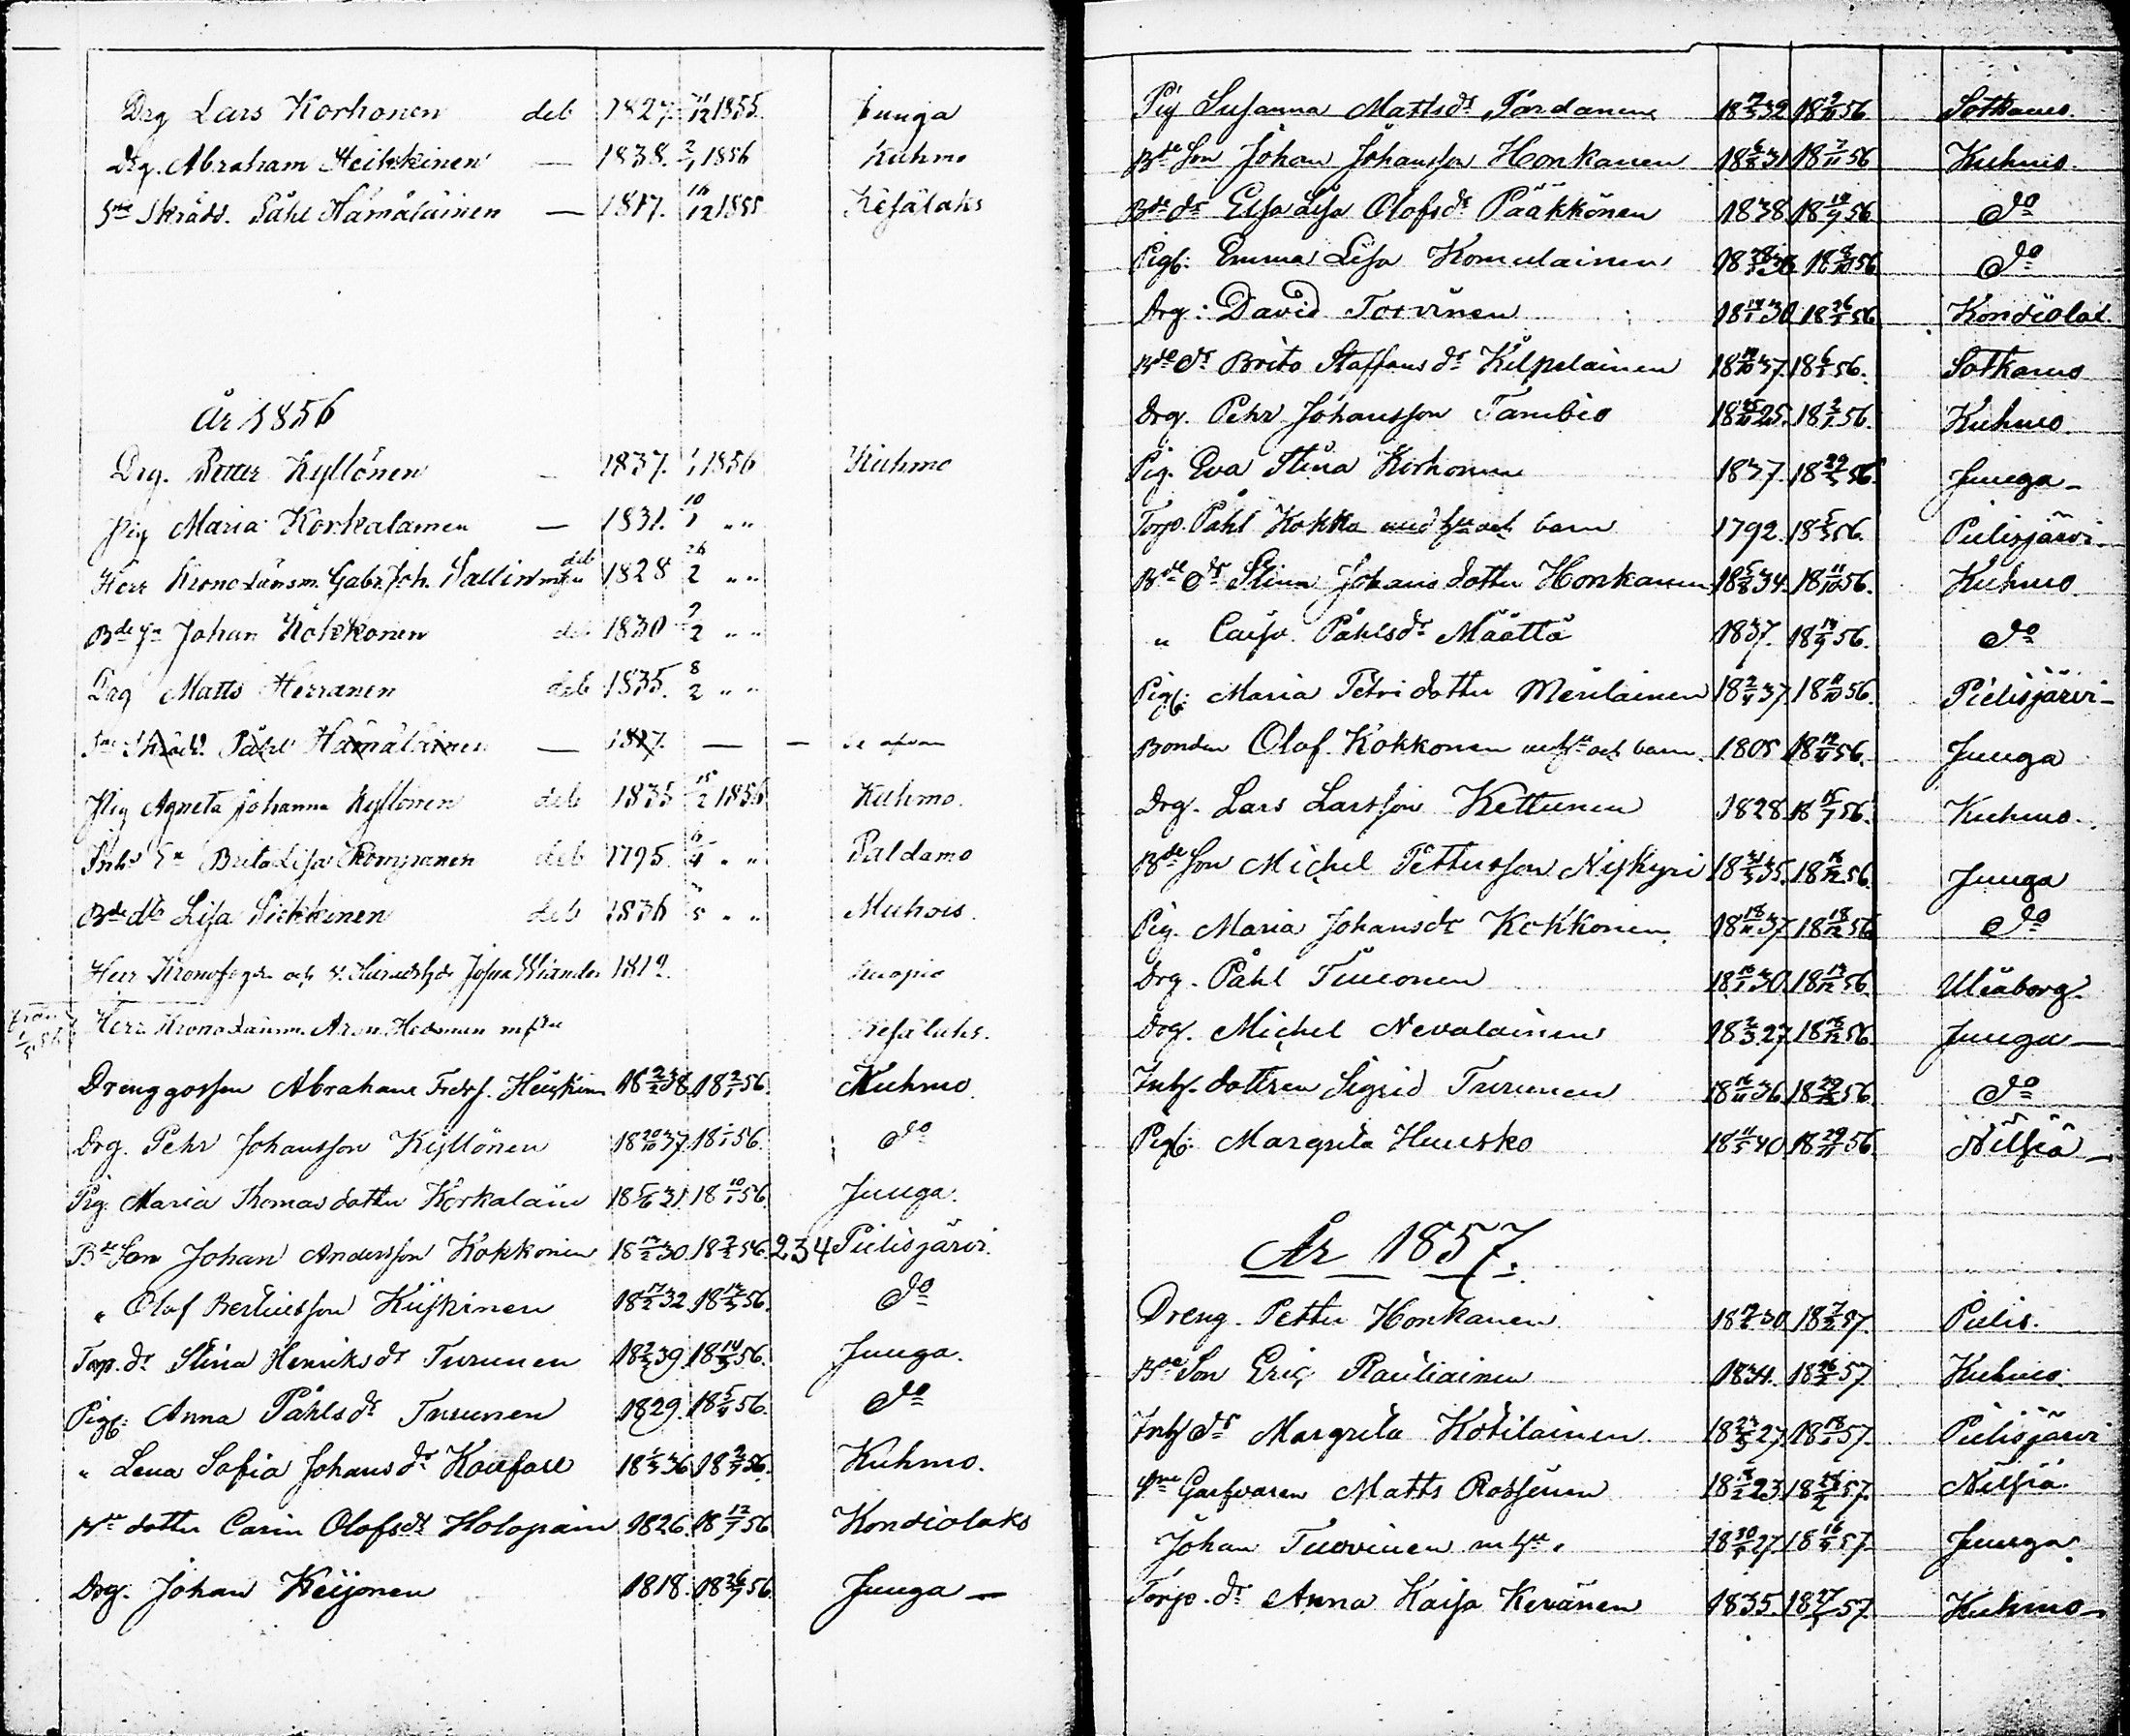 Drg Lars Korhonen deb 1827. 11/12 1855. Juuga
Drg. Abraham Heikkinen — 1838. 2/1 1856 Kuhmo
Skrädd. Påhl Hämäläinen — 1817. 16/12 1855 Kesälaks
År 1856
Drg. Petter Kyllönen — 1837. 1/1 1856 Kuhmo
Pig Maria Korkalainen — 1831. 10/1 " "
Herr Krono Länsm. Gabr. Joh. Sallin deb 1828 26/2 " "
Bde Sn Johan Kokkonen deb 1830 2/2 " "
Drg Matts Herranen deb 1835. 8/2 " "
Skrädd. Påhl Hämäläinen — 1817. — —
Pig Agneta Johanna Kyllönen deb 1835 15/2 1856 Kuhmo.
Inhs Brita Lisa Komparanen deb 1795. 6/4 " " Paldamo
Bde dtr Lisa Sirkkinen deb 1836 " " Muhos.
Herr Kronofogden och Josua Wiander 1812. Kuopio
Herr Krono Länsm. Aron Hedman m fru Kesälaks.
Drenggossen Abraham Heickin 18 2/2 38. 18 2/1 56. Kuhmo
Drg. Pehr Johansson Kyllönen 18 20/10 37. 18 1/1 56. do
Pig. Maria Thomasdotter Korkalain 18 5/6 31. 18 10/1 56. Juuga.
Bde Son Johan Andersson Kokkonen 18 17/2 30. 18 2/2 56. 234 Pielisjärvi.
" Olof Bertilsson Kiiskinen 18 17/2 32. 18 12/3 56. do
Torp. dr Stina Henriksdr Turunen 18 2/3 39. 18 14/3 56. Juuga.
Pig: Anna Påhlsdr Turunen 1829. 18 5/4 56. do
" Lena Sofia Johansdr 18 1/3 36 18 2/7 56. Kuhmo.
dotter Carin Olofsdr Holopain 1826. 18 12/7 56 Kondiolaks
Drg. Johan Keijonen 1818. 18 26/7 56. Juuga —
Pig Susanna Mattsdr Tardanen 18 7/3 32 18 9/10 56 Sotkamo.
Bde Son Johan Johansson Honkanen 18 6/8 31 18 7/11 56 Kuhmo.
Bde dr Elsa Olofsdr Pääkkönen 1838. 18 19/9 56 do
Pig: Emma Lisa Komulainen 18 56 do
Drg: David Torvinen 18 14/1 30. 18 26/2 56 Kondiolax
Bde dr Brita Staffansdr Kilpelainen 18 37. 18 6/2 56. Sotkamo
Drg. Pehr Johansson Tambio 18 25. 18 2/1 56. Kuhmo
Pig. Eva Stina Korhonen 1837. 18 56. Juuga —
Torp. Påhl Kokko med hu och barn 1792. 18 5/3 56. Pielisjärvi.
Bde dr Stina Johansdotter Honkanen 18 5/8 34. 18 11/10 56. Kuhmo
" Caisa Påhlsdr Määttä 1837. 18 14/9 56. do
Pig: Maria Petridotter Meriläinen 18 2/4 37. 18 11/10 56. Pielisjärvi —
Bonden Olof Kokkonen m hu och barn. 1805 18 56. Juuga
Drg. Lars Larsson Kettunen 1828. 18 15/7 56. Kuhmo.
Bde Son Michel Pettersson 18 21/3 35. 18 16/12 56. Juuga
Pig. Maria Johansdr Kokkonen 18 18/11 37. 18 18/12 56. do
Drg. Påhl Timonen 18 10/1 30. 18 56. Uleåborg.
Drg. Michel Nevalainen 18 2/3 27. 18 56. Juuga —
Inhs. dottren Sigrid Turunen 18 16/11 36. 18 56. do
Pig: Margreta Huusko 18 11/5 40. 18 56. Nilsiä —
År 1857.
Dreng. Petter Honkanen 18 30. 18 7/2 57. Pielis.
Bde Son Eric Rautiainen 1834. 18 26/2 57. Kuhmo.
Inhs dr Margreta Kotilainen. 18 23/3 27. 18 57. Pielisjärvi
Garfvaren Matts Rossinen 18 23. 18 57. Nilsiä.
Johan Tuovinen m hu. 18 30/1 27. 18 16/4 57. Juuga.
Torp. dr Anna Kaisa Kevänen 1835. 18 57. Kuhmo —